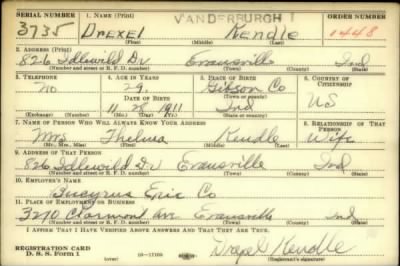 SERIAL NUMBER 1. NAME (Print) VANDERBURGH 1 ORDER NUMBER
3735 DREXEL Kendle 1448
(First) (Middle) (Last)
2. ADDRESS (Print)
826 Idlewild Dr Evansville Ind
(Number and street or R. F. D. number) (Town) (County) (State)
3. TELEPHONE 4. AGE IN YEARS 5. PLACE OF BIRTH 6. COUNTRY OF CITIZENSHIP
no 29 Gibson Co
DATE OF BIRTH
11 28 1911 Ind US
(Exchange) (Number) (Mo.) (Day) (Yr.) (State or country)
7. NAME OF PERSON WHO WILL ALWAYS KNOW YOUR ADDRESS 8. RELATIONSHIP OF THAT PERSON
Mrs Thelma Kendle Wife
(Mr., Mrs., Miss) (First) (Middle) (Last)
9. ADDRESS OF THAT PERSON
826 Idlewild Dr Evansville Ind
(Number and street or R. F. D. number) (Town) (County) (State)
10. EMPLOYER'S NAME
Bucyrus Erie Co
11. PLACE OF EMPLOYMENT OR BUSINESS
Evansville Ind
(Number and street or R. F. D. number) (Town) (County) (State)
I AFFIRM THAT I HAVE VERIFIED ABOVE ANSWERS AND THAT THEY ARE TRUE.
REGISTRATION CARD
D. S. S. Form 1 (over) Drexel Kendle
(Registrant's signature)